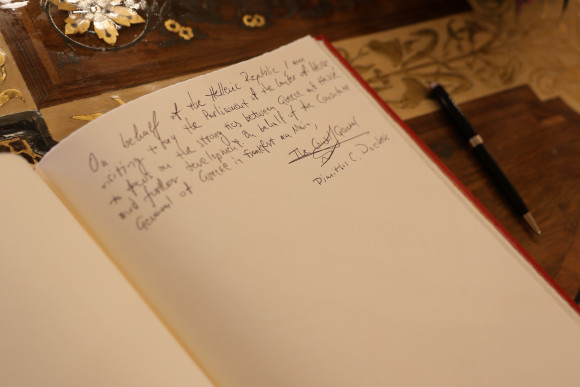 On behalf of the Hellenic Republic I am
visiting today the Parliament of the Land of Hesse
to the strong ties between Greece and Hesse
and further development. On behalf of the Consulate
General of Greece in Frankfurt am Main,
The Consul General
Dimitris C.